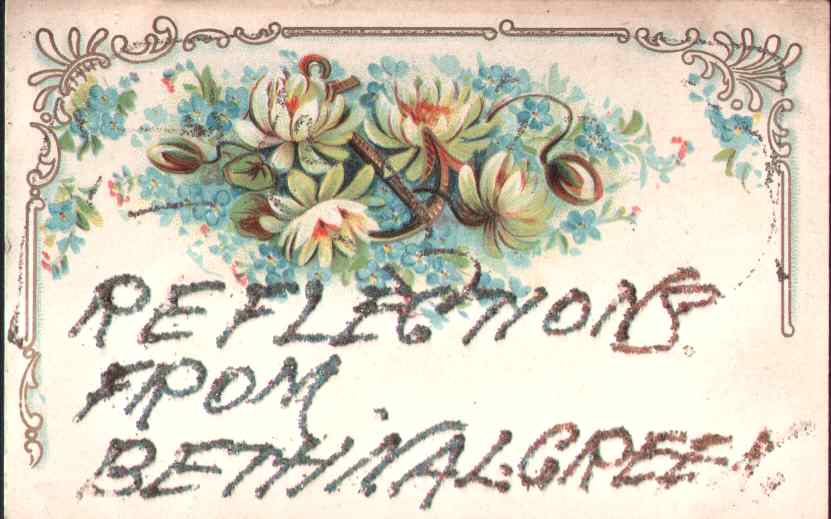 REFLECTIONS
FROM
BETHINAL GREEN